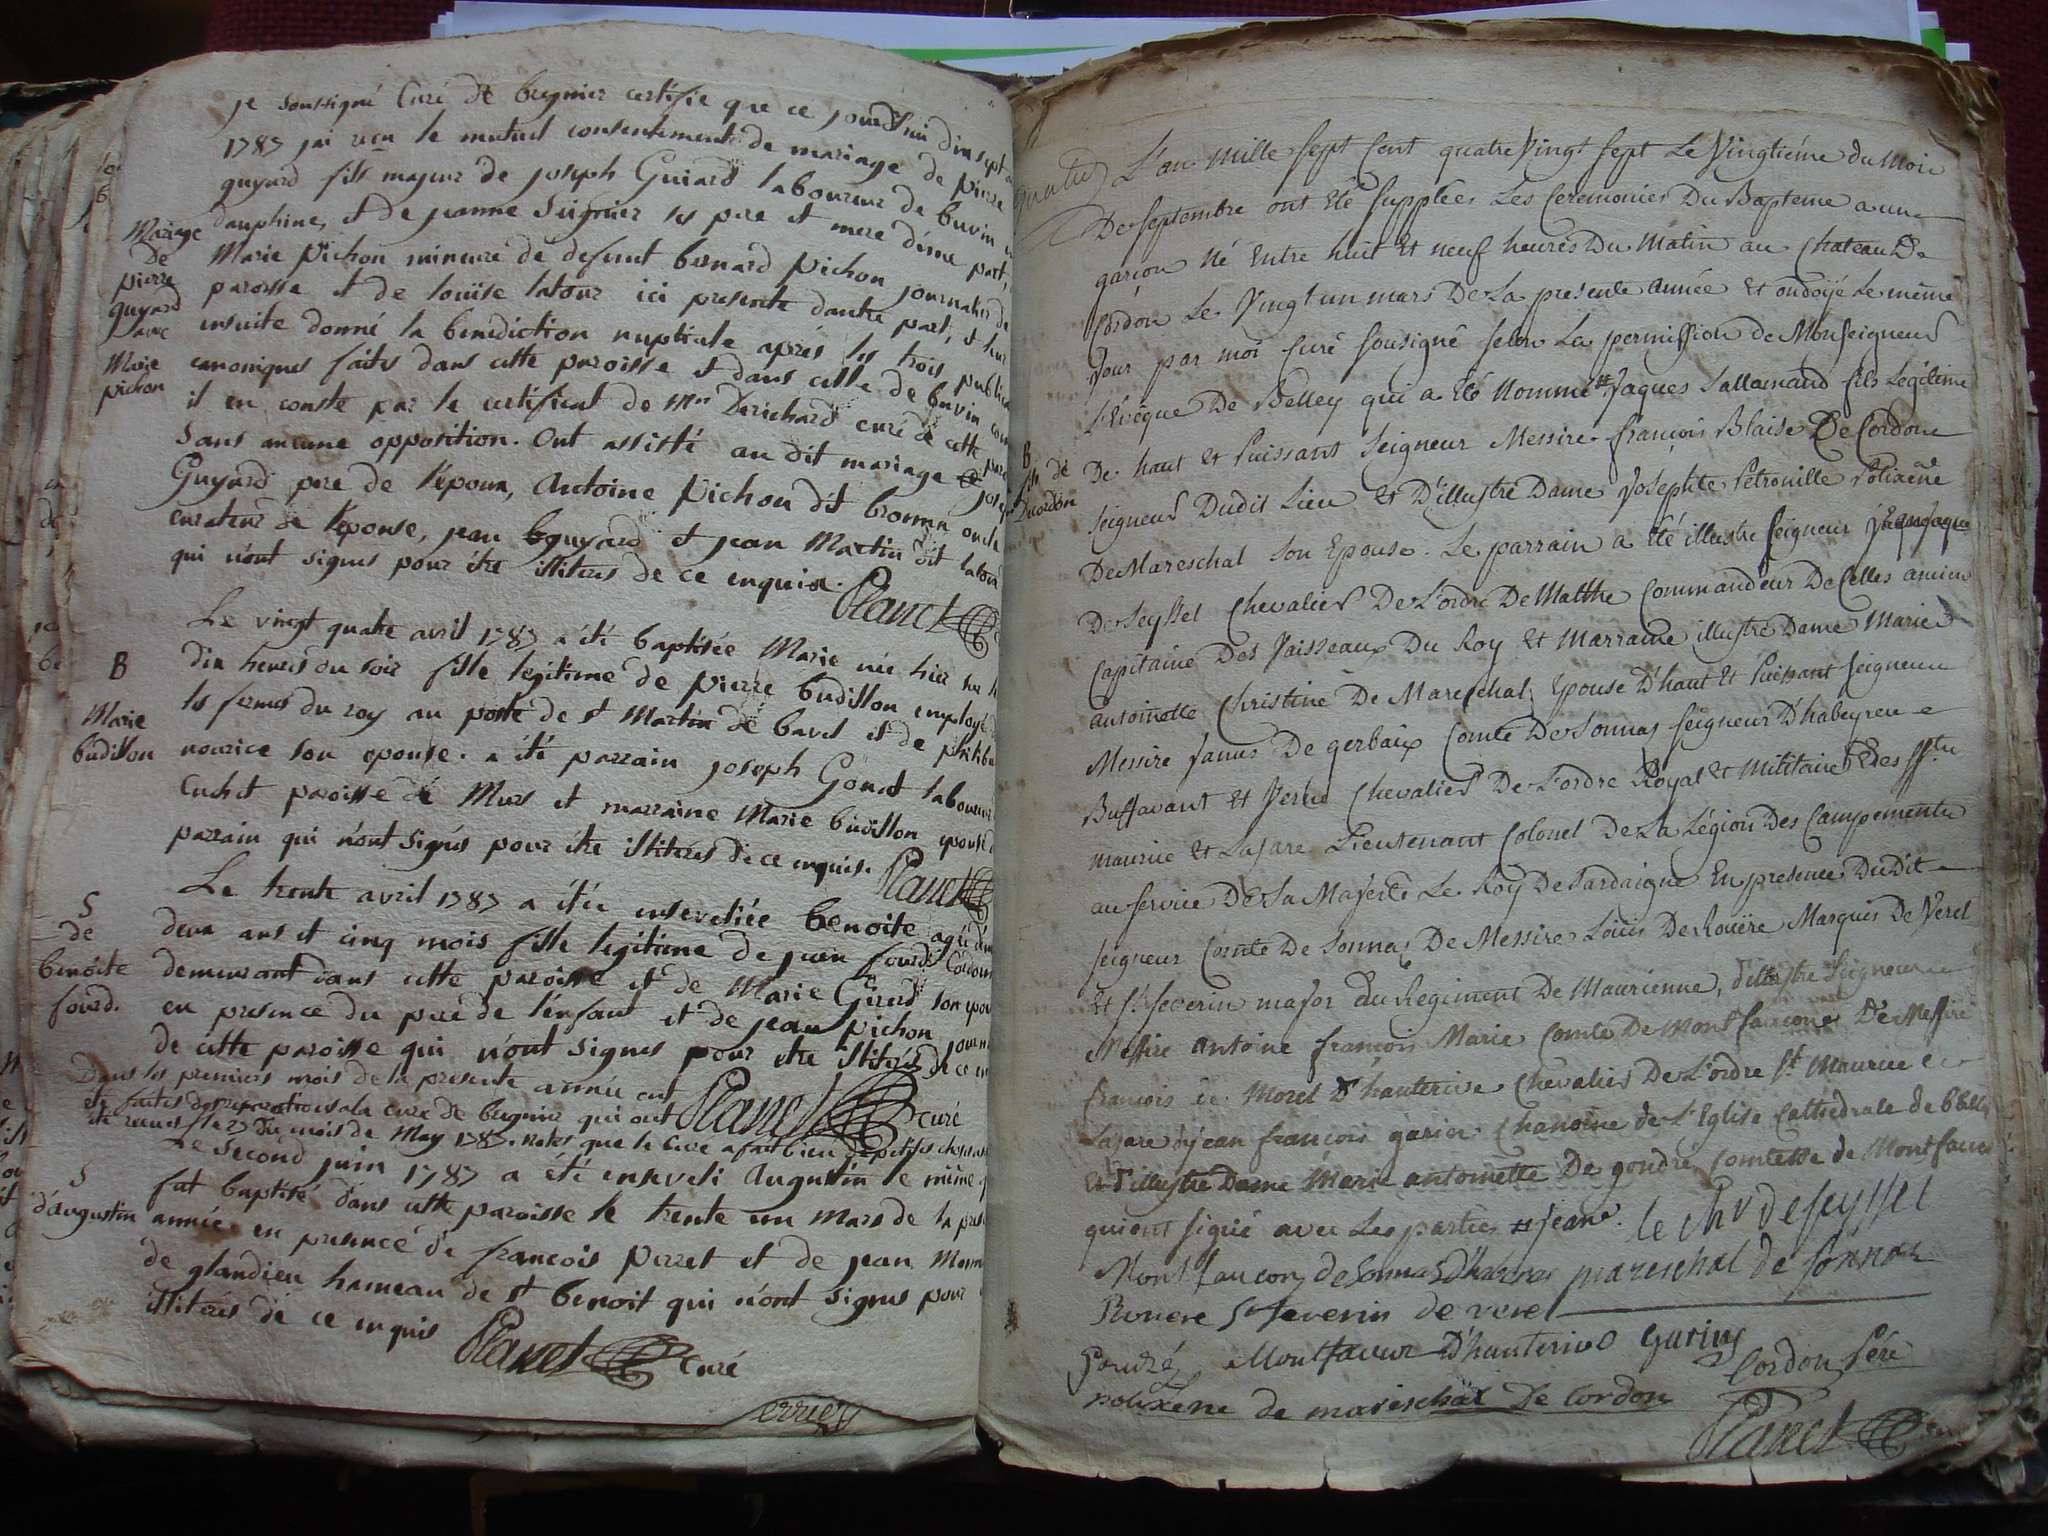 je soussigné Curé de bregnier certifie que ce jourdhui dixsept
1787 jai reçu le mutuel consentement de mariage de pierre
guyard fils majeur de joseph Guiard laboureur de buvin
dauphine, et de jeanne Seignier ses pere et mere d'une part,
Mariage
De
pierre
guyard
avec
Marie
pichon
Marie Pichon mineure de defunt bernard Pichon journalier de
paroisse et de loüise latour ici presente dautre part, et leur
ensuite donné la benediction nuptiale après les trois
canoniques faites dans cette paroisse et dans celle de buvin
il en conste par le certificat de Mr Derichard curé de cette
Sans aucune opposition. Ont assisté au dit mariage
Guyard pere de l'époux, Antoine Pichon dit oncle
curateur de l'épouse, jean guyard et jean Martin dit
qui n'ont signés pour être illiteres de ce enquis.
Planet
Le vingt quatre avril 1787 a été baptisée Marie née hier
B
Marie
budillon
dix heures du soir fille legitime de pierre budillon employé
les fermes du roy au poste de st Martin de bavel et de
nourice son epouse. a été parrain joseph Gonet laboureur
Cuchet paroisse de Murs et marraine Marie budillon epouse
parrain qui n'ont signés pour être illiterés de ce enquis.
Planet
Le trente avril 1787 a été enseveliée benoite agée
S
de
benoite
sourd.
deux ans et cinq mois fille legitime de jean sourd
demeurant dans cette paroisse et de Marie Girerd son
en presence du pere de l'enfant et de jean pichon
de cette paroisse qui n'ont signés pour etre illiterés de ce
Planet curé
Dans les premiers mois de la presente année ont
été faites des reparations a la cure de bregnier qui ont
été reçues le 29 du mois de May 1787. notes que le Curé a fait bien de petites choses
S
d'augustin
Le Second juin 1787 a été enseveli Augustin le même
fut baptisé dans cette paroisse le trente un mars de la
année en presence de françois perret et de jean
de glandieu hameau de st benoit qui n'ont signés pour
illiterés de ce enquis
Planet curé
L'an Mille Sept Cent quatre Vingt Sept Le Vingtiéme du Mois
De Septembre ont été Supplées Les Ceremonies Du Bapteme a un
garçon Né Entre huit Et neuf heures Du Matin au Chateau De
Cordon Le Vingt un mars De La presente année Et ondoÿé Le même
Jour par moi Curé Sousigné Selon La permission de Monseigneur
L'évêque De Belley qui a été Nommé Jaques Sallamand fils Légitime
B
De
Ducordon
De haut Et Puissant Seigneur Messire françois Blaise De Cordon
Seigneur Dudit Lieu Et D'illustre Dame Josephte Petronille Polixene
De Mareschal Son Epouse. Le parrain a été illustre Seigneur
De Seyssel Chevalier De L'ordre De Malthe Commandeur De Celles ancien
Capitaine Des Vaisseaux Du Roy Et Marraine illustre Dame Marie
antoinette Christine De Mareschal Epouse D'haut Et Puissant Seigneur
Messire Janus De gerbaix Comte De Sonnas Seigneur D'habeyreu
Buffavant Et Verel Chevalier De L'ordre Royal Et Militaire Des
Maurice Et Lazare Lieutenant Colonel De La Légion Des Campements
au Service De Sa Majesté Le Roy De Sardaigne En presence Dudit
Seigneur Comte De Sonnas De Messire Louis De Rouëre Marquis De Verel
Et St. Severin major du Regiment De Maurienne, d'illustre Seigneur
Messire antoine françois Marie Comte De Montfaucon De Messire
françois Morel D'hauterive Chevalier De L'ordre St. Maurice
Lazare jean françois garin Chanoine de L'Eglise Cathedrale de Belley
Et d'illustre Dame Marie antoinette De gondré Comtesse de Montfaucon
qui ont signé avec Les parties Jean. le chr de seyssel
Montfaucon de Sonnas mareschal de Sonnas
Rouere St Severin de verel
Montfaucon D'hauterive Garin
Cordon Père
polixene de mareschal De Cordon
Planet